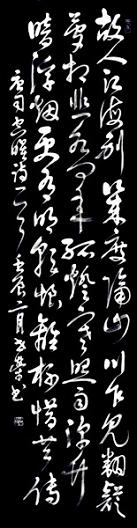 故人江海別幾度隔山川乍見翻疑
夢相悲各問年孤燈寒照雨深竹
暗浮烟更有明朝恨離杯惜共傳
唐司空曙詩一首壬辰二月書